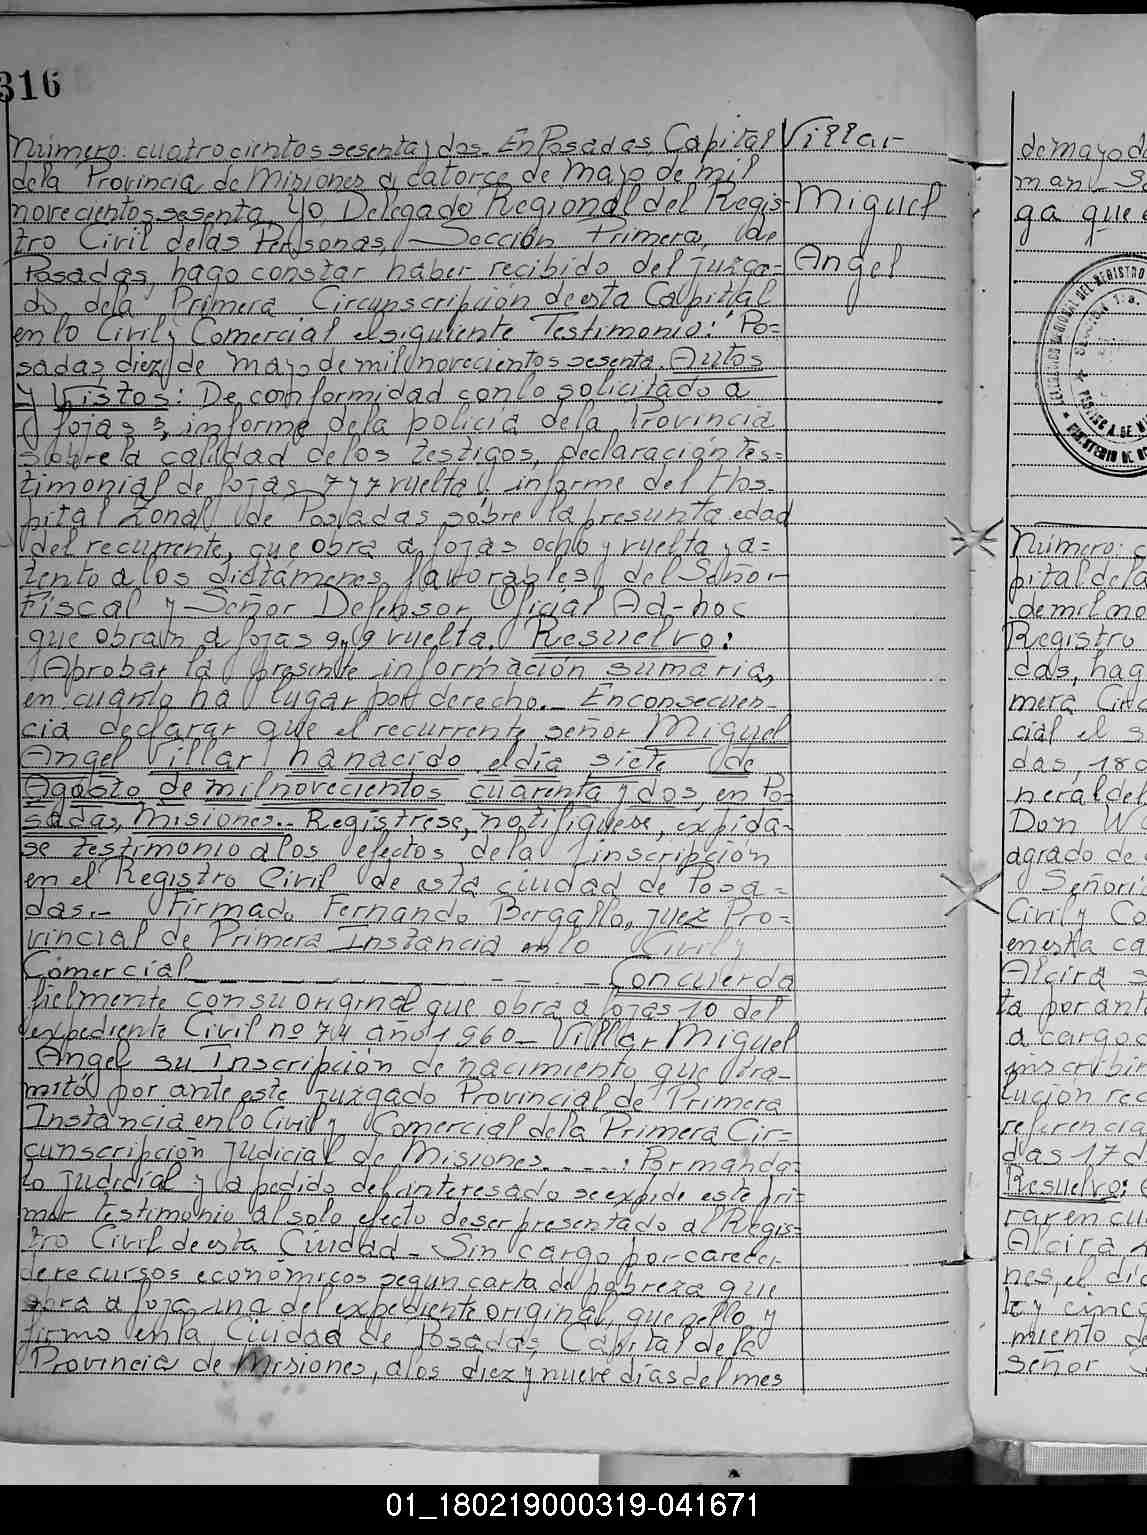 316
Número: cuatrocientos sesenta y dos. En Posadas, Capital
de la Provincia de Misiones a catorce de Mayo de mil
novecientos sesenta. Yo, Delegado Regional del Regis-
tro Civil de las Personas, Sección Primera, de
Posadas, hago constar haber recibido del Juzga=
do de la Primera Circunscripción de esta Capital
en lo Civil y Comercial el siguiente Testimonio: "Po=
sadas diez de mayo de mil novecientos sesenta. Autos
y Vistos: De conformidad con lo solicitado a
fojas 3, informe de la policia de la Provincia
sobre la calidad de los testigos, declaración tes=
timonial de fojas 7 y 7 vuelta, informe del Hos-
pital Zonal de Posadas sobre la presunta edad
del recurrente, que obra a fojas ocho y vuelta y a=
tento a los dictámenes favorables del Señor
Fiscal y Señor Defensor Oficial Ad-hoc
que obran a fojas 9 y 9 vuelta. Resuelvo:
Aprobar la presente información sumaria,
en cuanto ha lugar por derecho.- En consecuen-
cia declarar que el recurrente señor Miguel
Angel Villar ha nacido el día siete de
Agosto de mil novecientos cuarenta y dos, en Po=
sadas, Misiones.- Regístrese, notifíquese, expída=
se testimonio a los efectos de la inscripción
en el Registro Civil de esta ciudad de Posa=
das.- Firmado Fernando Bergallo, Juez Pro=
vincial de Primera Instancia en lo Civil y
Comercial Concuerda
fielmente con su original que obra a fojas 10 del
expediente Civil nº 74 año 1960- Villar Miguel
Angel su Inscripción de nacimiento que tra-
mitó por ante este Juzgado Provincial de Primera
Instancia en lo Civil y Comercial de la Primera Cir=
cunscripción Judicial de Misiones.....: Por manda=
to Judicial y a pedido del interesado se expide este pri-
mer testimonio al solo efecto de ser presentado al Regis=
tro Civil de esta Ciudad- Sin cargo por carecer
de recursos económicos segun carta de pobreza que
obra a foja una del expediente original, que sello y
firmo en la Ciudad de Posadas Capital de la
Provincia de Misiones, a los diez y nueve días del mes
Villar
Miguel
Angel
de mayo d
man
ga que
Número:
pital de la
de mil no
Registro
das, hag
mera Circ
cial el s
das, 18
neral de
Don W
agrado de
Señori
Civil y Co
en esta ca
Alcira s
ta por ant
a cargo
inscribir
lución rec
referencia
das 17 d
Resuelvo:
rar en cu
Alcira
nes, el dí
te y cinco
miento d
señor
01_180219000319-041671